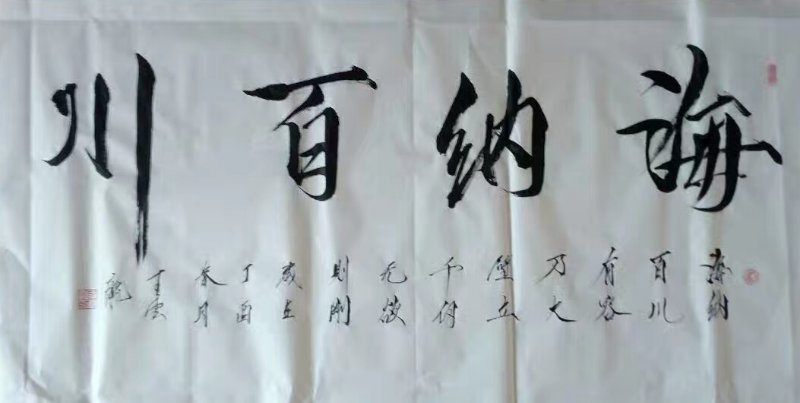 海纳百川
海纳
百川
有容
乃大
壁立
千仞
无欲
则刚
岁在
丁酉
春月
云
龙